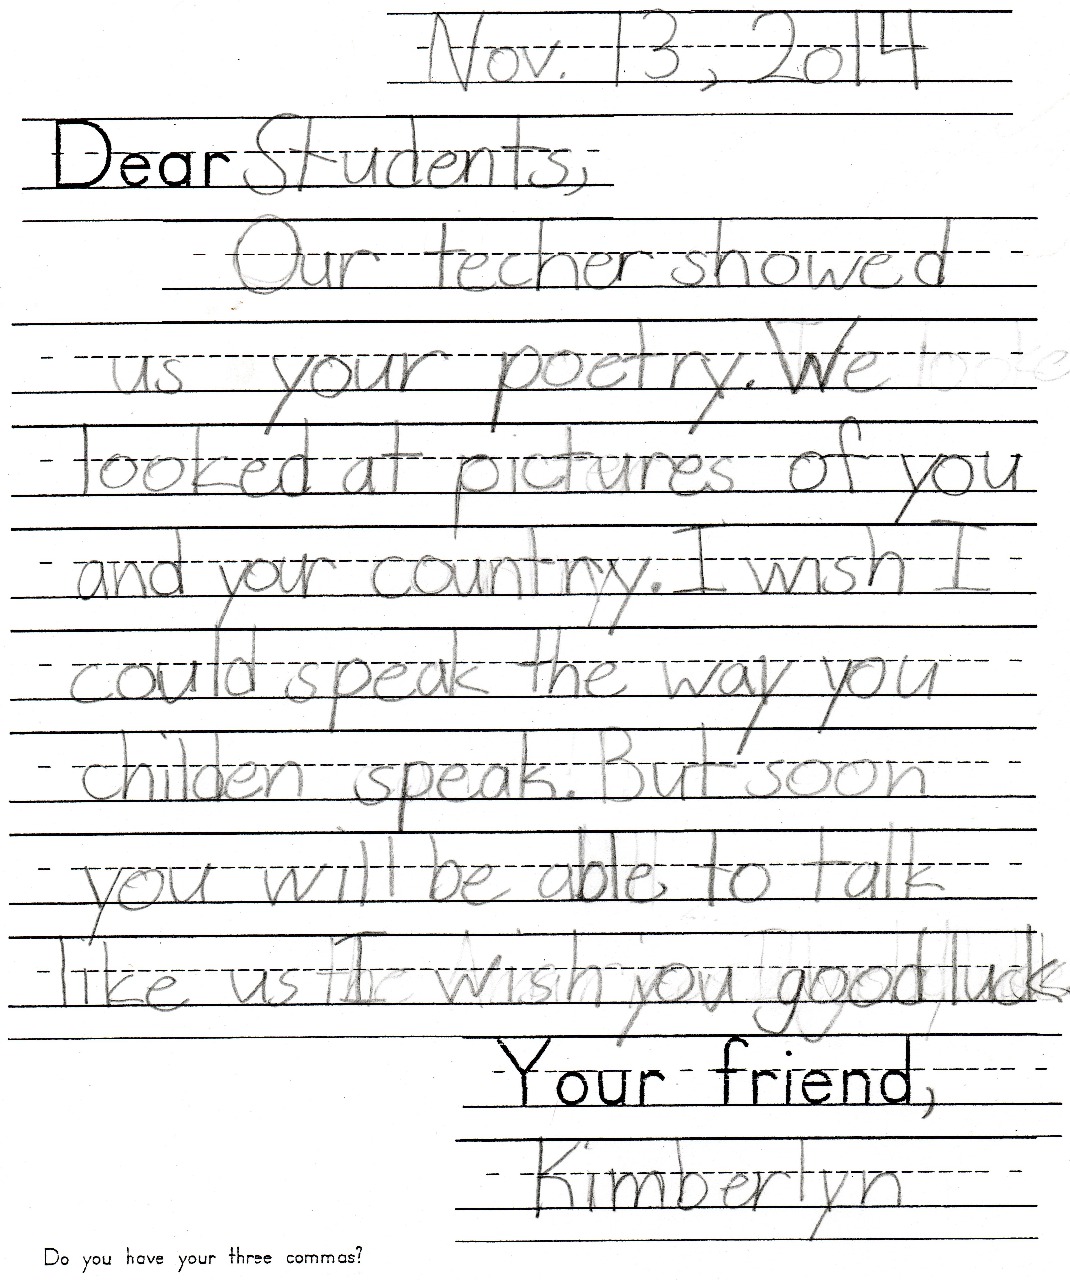 Nov. 13, 2014
Dear Students,
Our techer showed
us your poetry. We
looked at pictures of you
and your country. I wish I
could speak the way you
childen speak. But soon
you will be able to talk
like us I wish you good luck
Your friend,
Kimberlyn
Do you have your three commas?